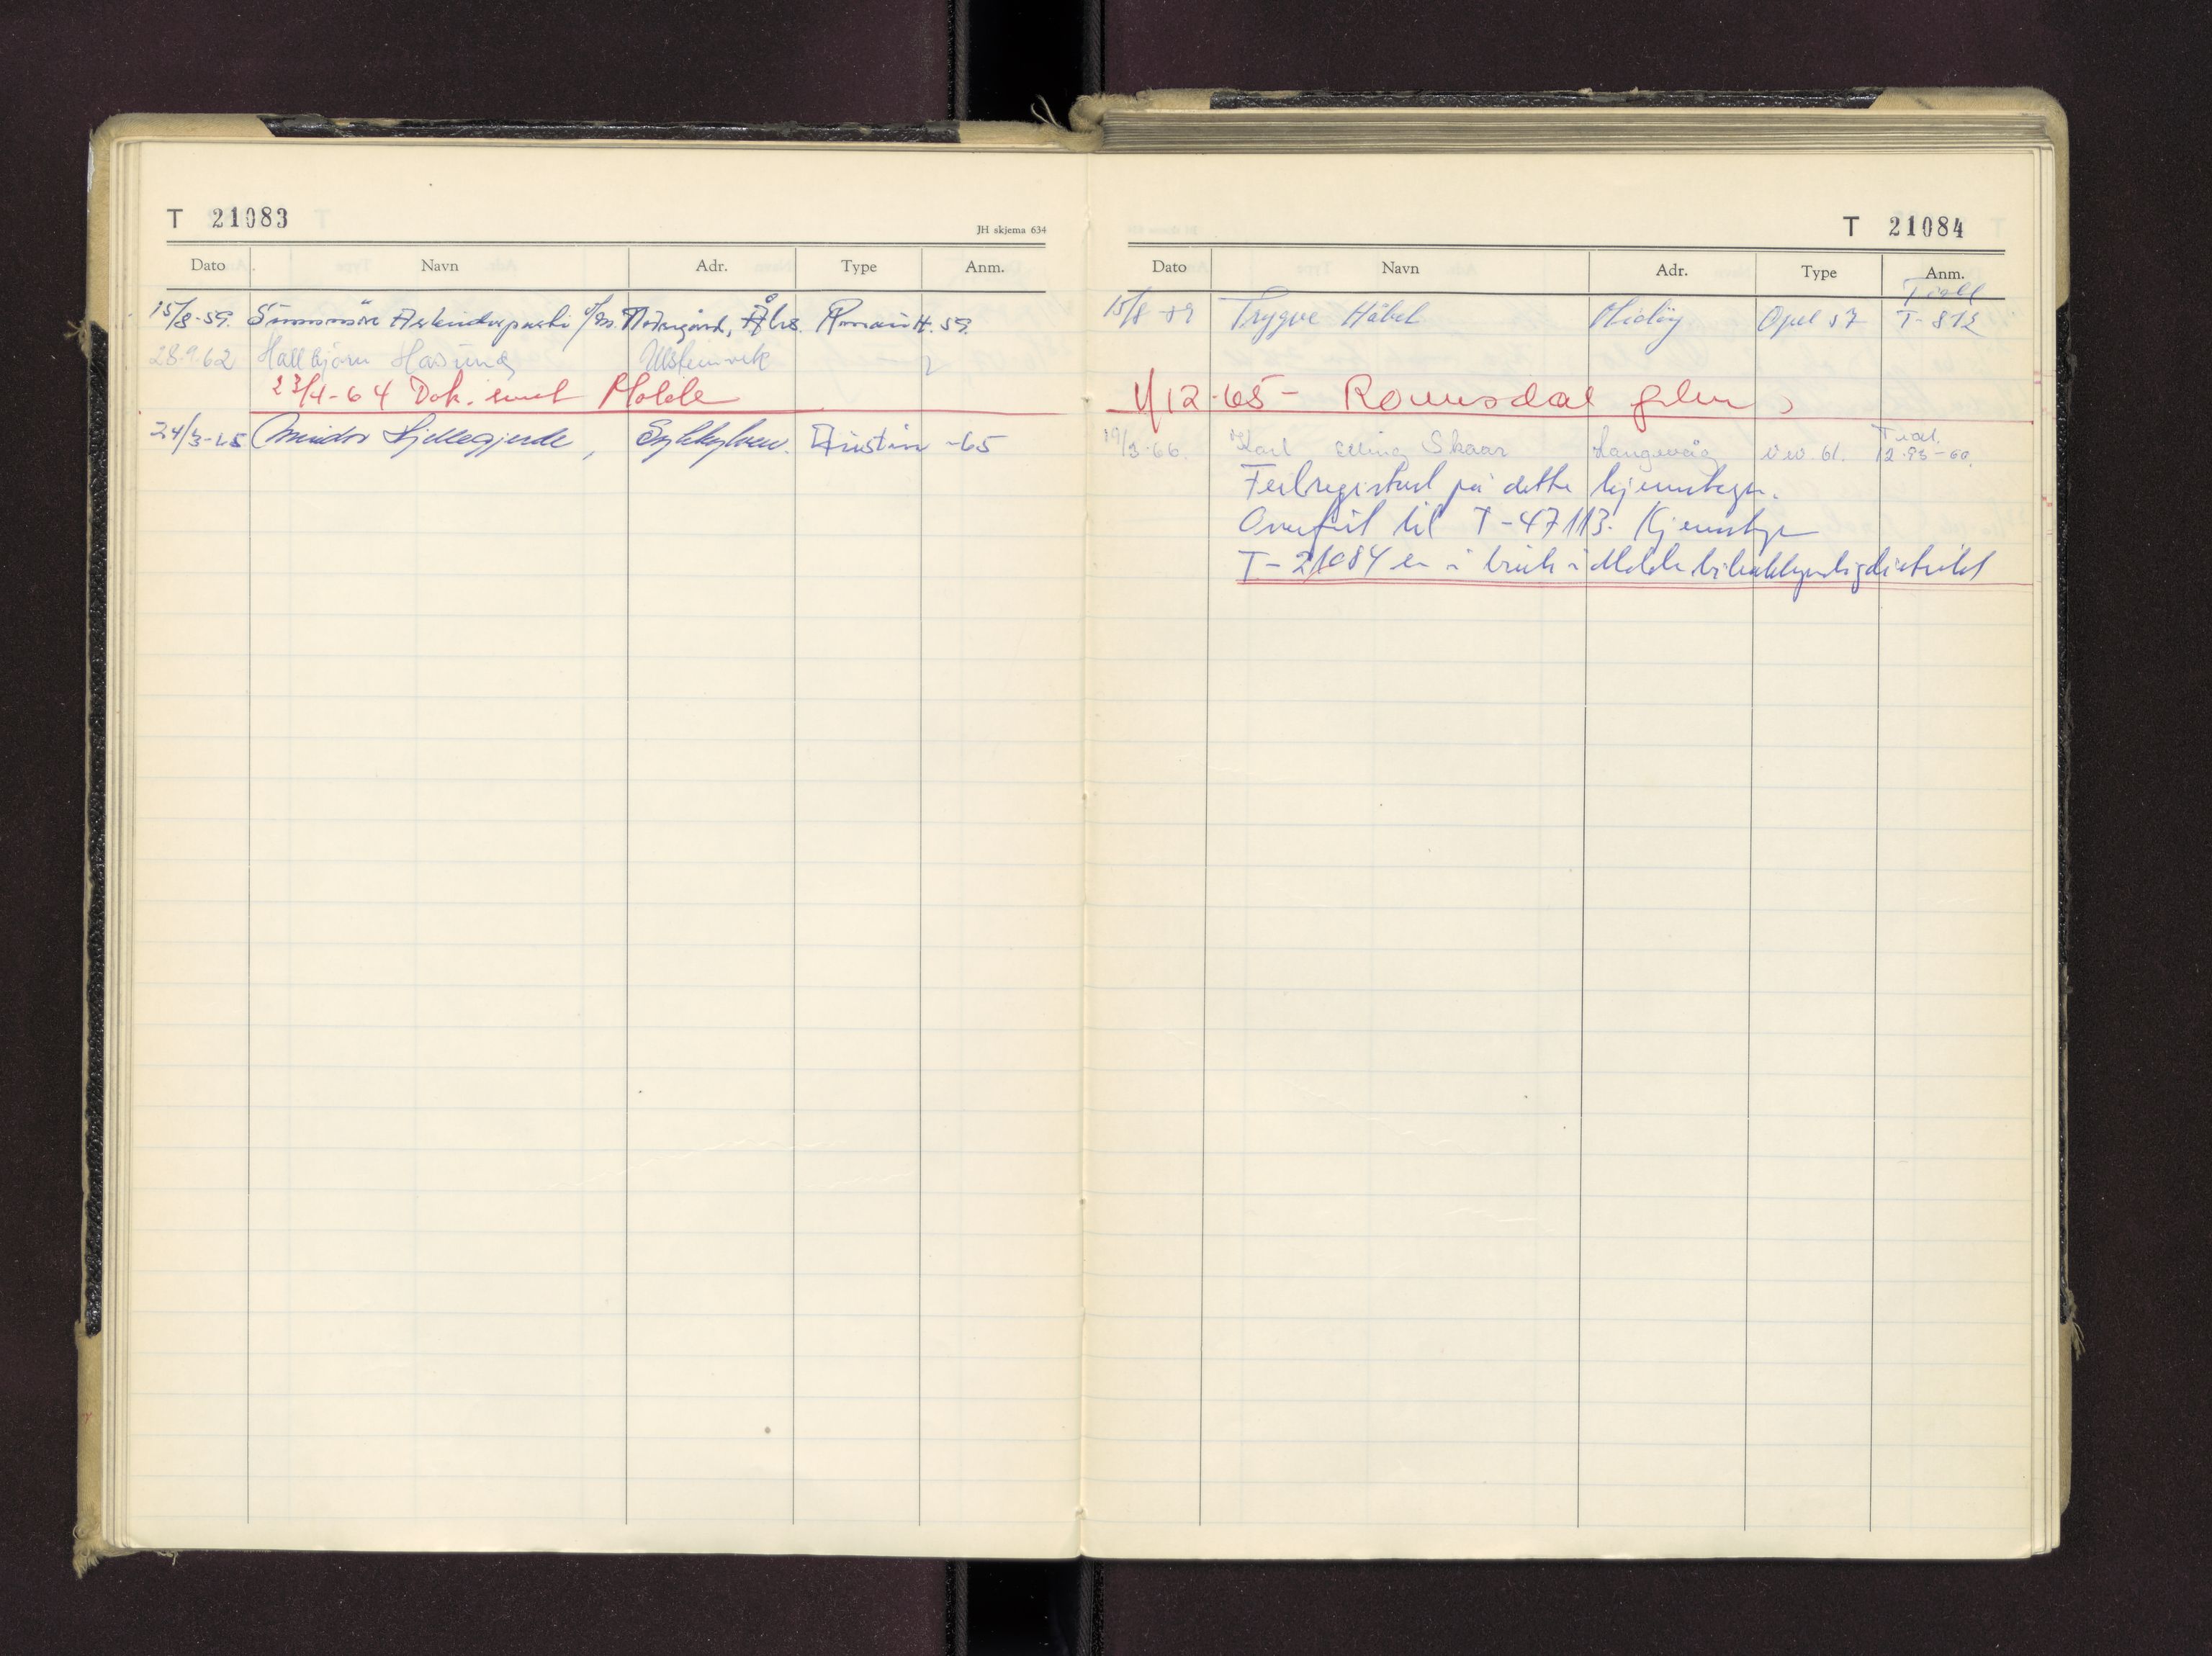 T 21083
JH skjema 634
Dato Navn Adr. Type Anm.
15/8-59. Sunnmöre Arbeiderparti Ålis. 59.
28.9.62 Hallbjörn Hasund Ulsteinvik — " —
23/4-64 Dok. sendt Molde
24/3-65 Hjellegjerde, Sykkylven. Austin -65
T 21084
Dato Navn Adr. Type Anm.
15/8 59 Trygve Midöy Opel 57 T- 812
1/12-65- Romsdal
19/3-66. Karl Elling Skaar Langevåg v.w. 61. 12.93-60.
Feilregistrert på dette kjennetegn.
Overfört til T-47113. Kjennetegn
T-21084 er i bruk i Molde bilsakkyndigdistrikt